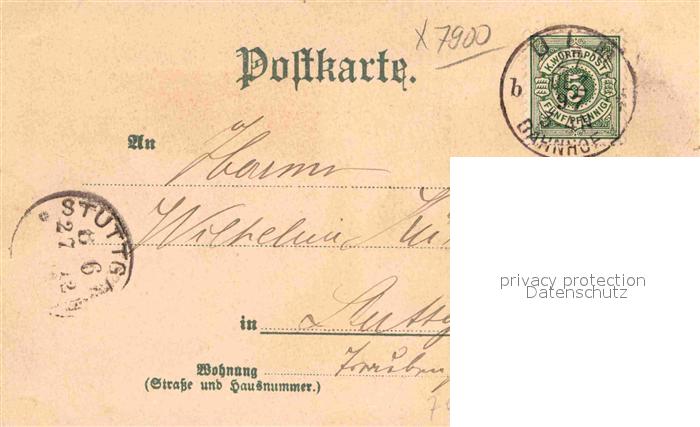 X 7900
Postkarte.
ULM
b
BAHNHOF
K.WÜRTT.POST
5
FÜNF PFENNIG
An
Herrn
Wilhelm
STUTTG
6 6
27 12
in
Stuttg
Wohnung
(Straße und Hausnummer.)
privacy protection
Datenschutz